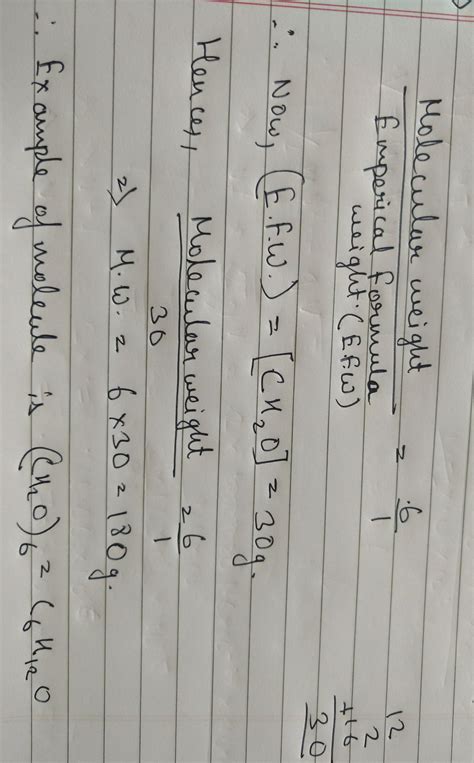 Molecular weight = 6
Emperical formula 1
weight. (E.F.W)
12
2
+16
30
∴ Now, (E.F.W.) = [CH₂O] = 30g.
Hence,, Molecular weight = 6
30 1
=) M.W. = 6 x 30 = 180g.
∴ Example of molecule is (CH₂O)₆ = C₆H₁₂O